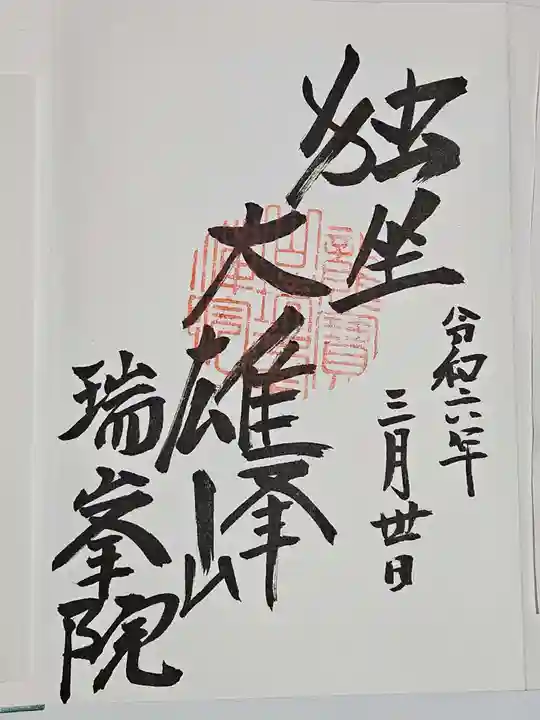 令和六年
三月卅日
独坐
大雄峰
瑞峯院